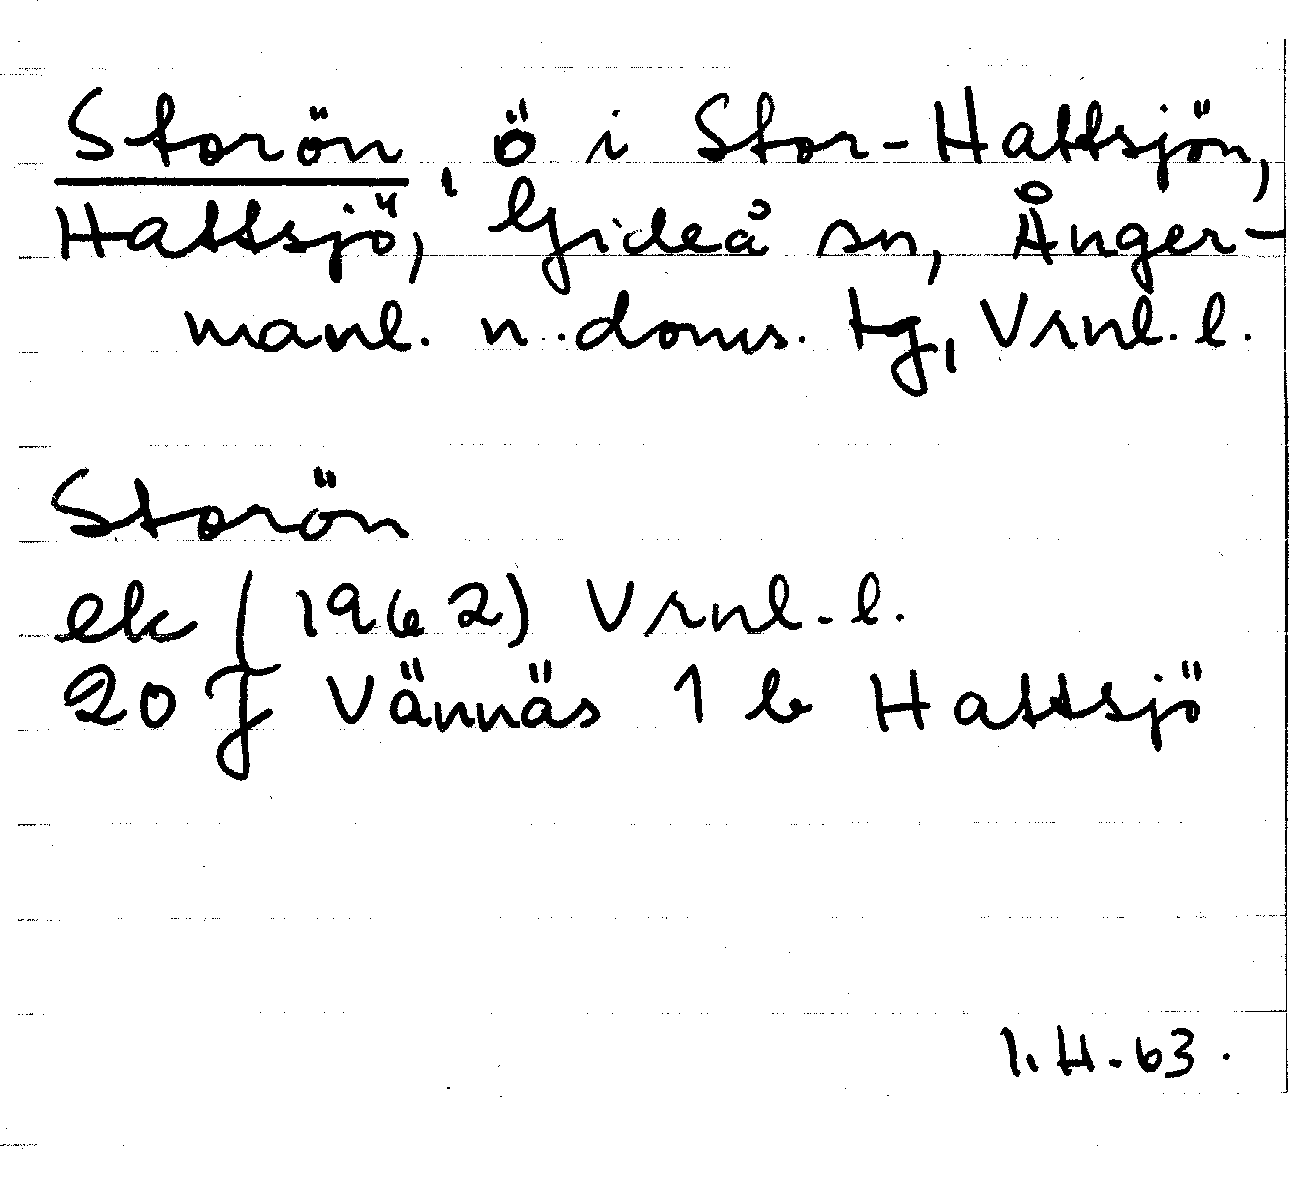 Storön, ö i Stor-Hattsjön,
Hattsjö, Gideå sn, Ånger-
manl. n. doms. tg, Vrnl. l.
Storön
ek (1962) Vrnl. l.
20 J Vännäs 1 b Hattsjö
I. H. 63.